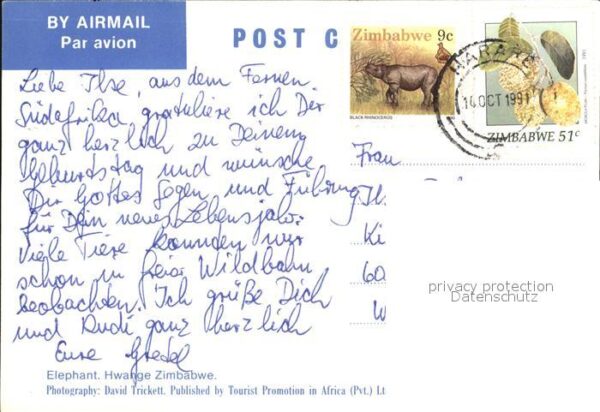 BY AIRMAIL
Par avion
POST C
Zimbabwe 9c
BLACK RHINOCEROS
HARARE
14 OCT 1991
ZIMBABWE 51c
Liebe Ilse, aus dem Fernen
Südafrika gratuliere ich Dir
ganz herzlich zu Deinem
Geburtstag und wünsche
Dir Gottes Segen und Führung
für Dein neues Lebensjahr.
Viele Tiere konnten wir
schon in freier Wildbahn
beobachten. Ich grüße Dich
und Rudi ganz herzlich
Eure Gretel
Frau
Ils
Ki
60
W
privacy protection
Datenschutz
Elephant, Hwange Zimbabwe.
Photography: David Trickett. Published by Tourist Promotion in Africa (Pvt.) Lt